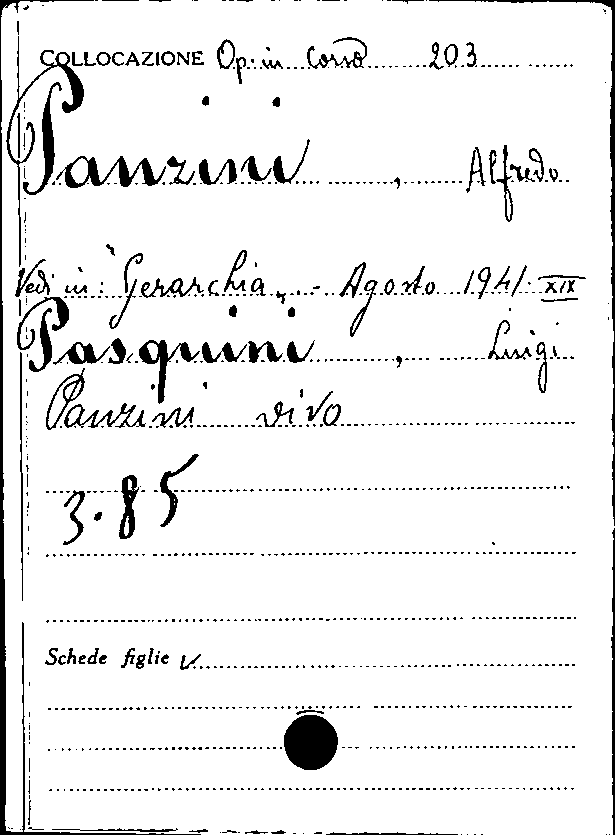 COLLOCAZIONE Op. in corso 203
Panzini, Alfredo
Vedi in: "Gerarchia„ - Agosto 1941 - XIX
Pasquini, Luigi
Panzini vivo
3.85
Schede figlie V